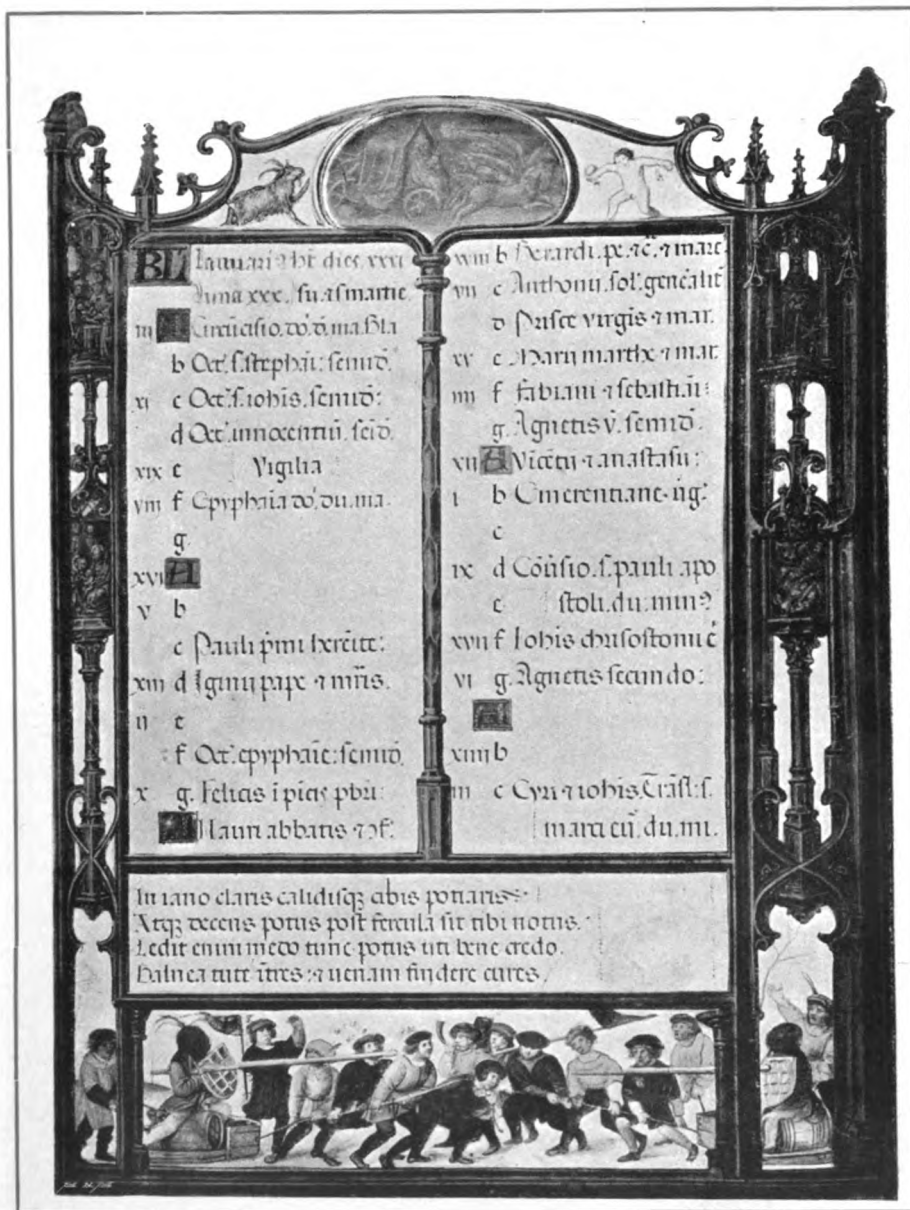 KL Ianuari⁹ ht̄ dies. xxxi
luna xxx. su. ɿ smartie
iii A Circūcisio. do'. d. ma. Bla
b Oct'. s. stephāi: semid̄.
xi c Oct'. s. iohis. semid̄:
d Oct'. innocentiū. seid̄.
xix e Vigilia
viii f Epyphaīa do'. du. ma.
g.
xvi A
v b
c Pauli p̄mi heremite:
xiii d Iginij pape ɿ mr̄is.
ii e
f Oct'. epyphaīe: semid̄.
x g. Felicis ī picis pbr̄i:
A Mauri abbatis ɿ ꝯf':
xviii b Berardi. pe. ɿ marc̄
vii c Anthonij. sol'. gen̄ealit̄
d Prisce virgis ɿ mar.
xv e Marij marthe ɿ mar.
iiii f Fabiani ɿ sebastiāi:
g. Agnetis v̄. semid̄.
xii A Vicētij ɿ anastasij:
i b Emerentiane. ūg'.
c
ix d Cōūsio. s. pauli. apo
e stoli. du. min⁹
xvii f Iohis chrisostomi ē
vi g. Agnetis secundo:
A
xiiii b
iii c Cyri ɿ iohis. Trāsl': s.
marci cū. du. mi.
In iano claris calidisq; cibis potiaris:
Atq; decens potus post fercula sit tibi notus.
Ledit enim medo tunc potus uti bene credo.
Balnea tute ītres: ɿ uenam findere cures.